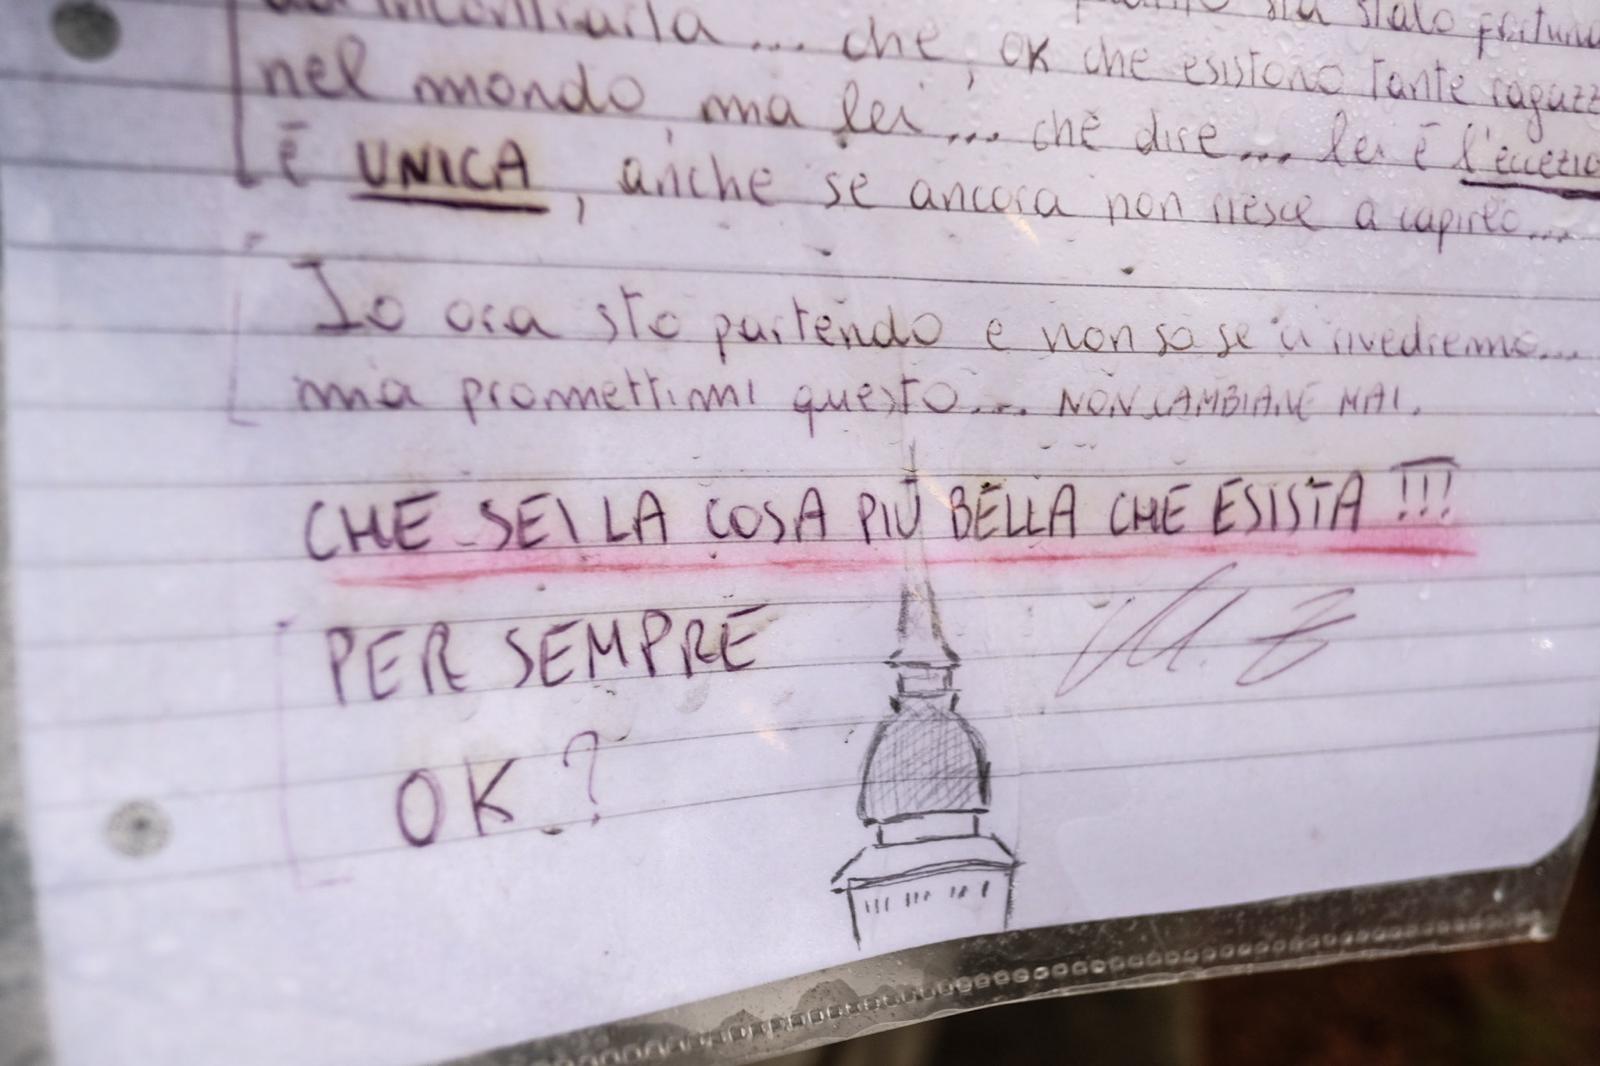 ad incontrarla ... che, OK che esistono tante ragazz
sia stato fortuna
nel mondo ma lei ... che dire ... lei è l'eccezio
è UNICA, anche se ancora non riesce a capirlo...
Io ora sto partendo e non so se ci rivedremo...
ma promettimi questo... NON CAMBIARE MAI.
CHE SEI LA COSA PIÙ BELLA CHE ESISTA !!!
PER SEMPRE
OK?